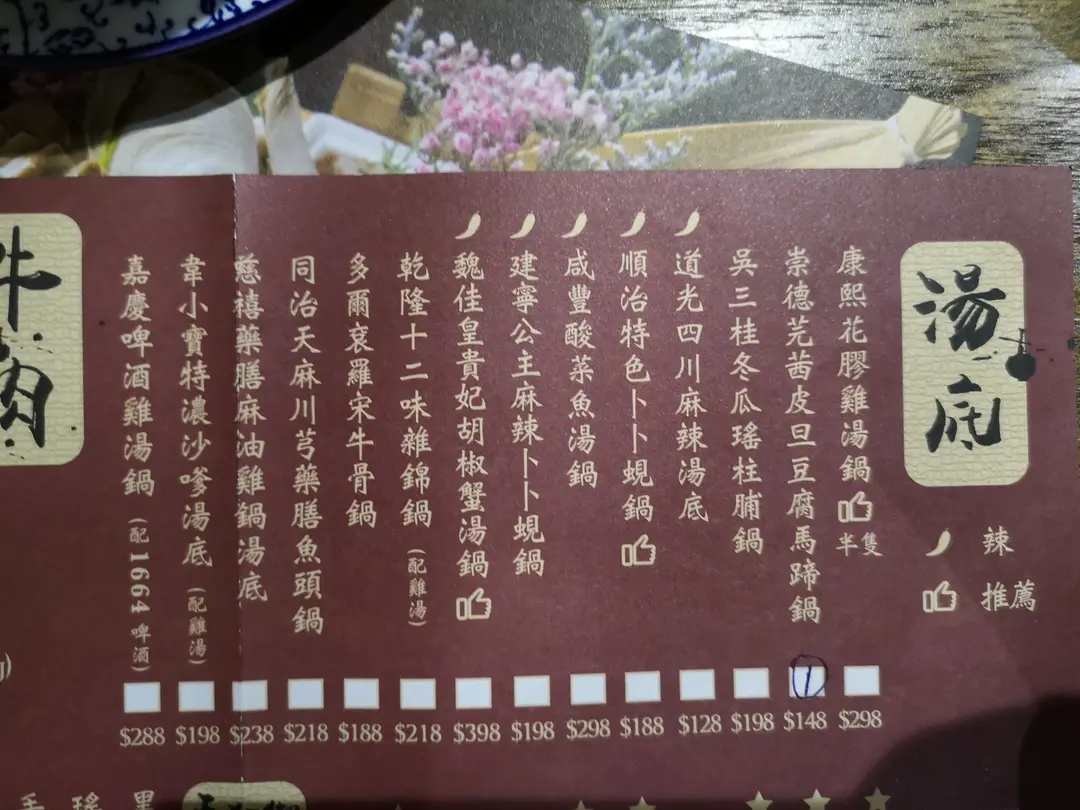 湯底
辣
推薦
康熙花膠雞湯鍋 半隻
$298
崇德芫茜皮旦豆腐馬蹄鍋
1
$148
吳三桂冬瓜瑤柱脯鍋
$198
道光四川麻辣湯底
$128
順治特色卜卜蜆鍋
$188
咸豐酸菜魚湯鍋
$298
建寧公主麻辣卜卜蜆鍋
$198
魏佳皇貴妃胡椒蟹湯鍋
$398
乾隆十二味雜錦鍋(配雞湯)
$218
多爾袞羅宋牛骨鍋
$188
同治天麻川芎藥膳魚頭鍋
$218
慈禧藥膳麻油雞鍋湯底
$238
韋小寶特濃沙爹湯底(配雞湯)
$198
嘉慶啤酒雞湯鍋(配1664啤酒)
$288
牛肉